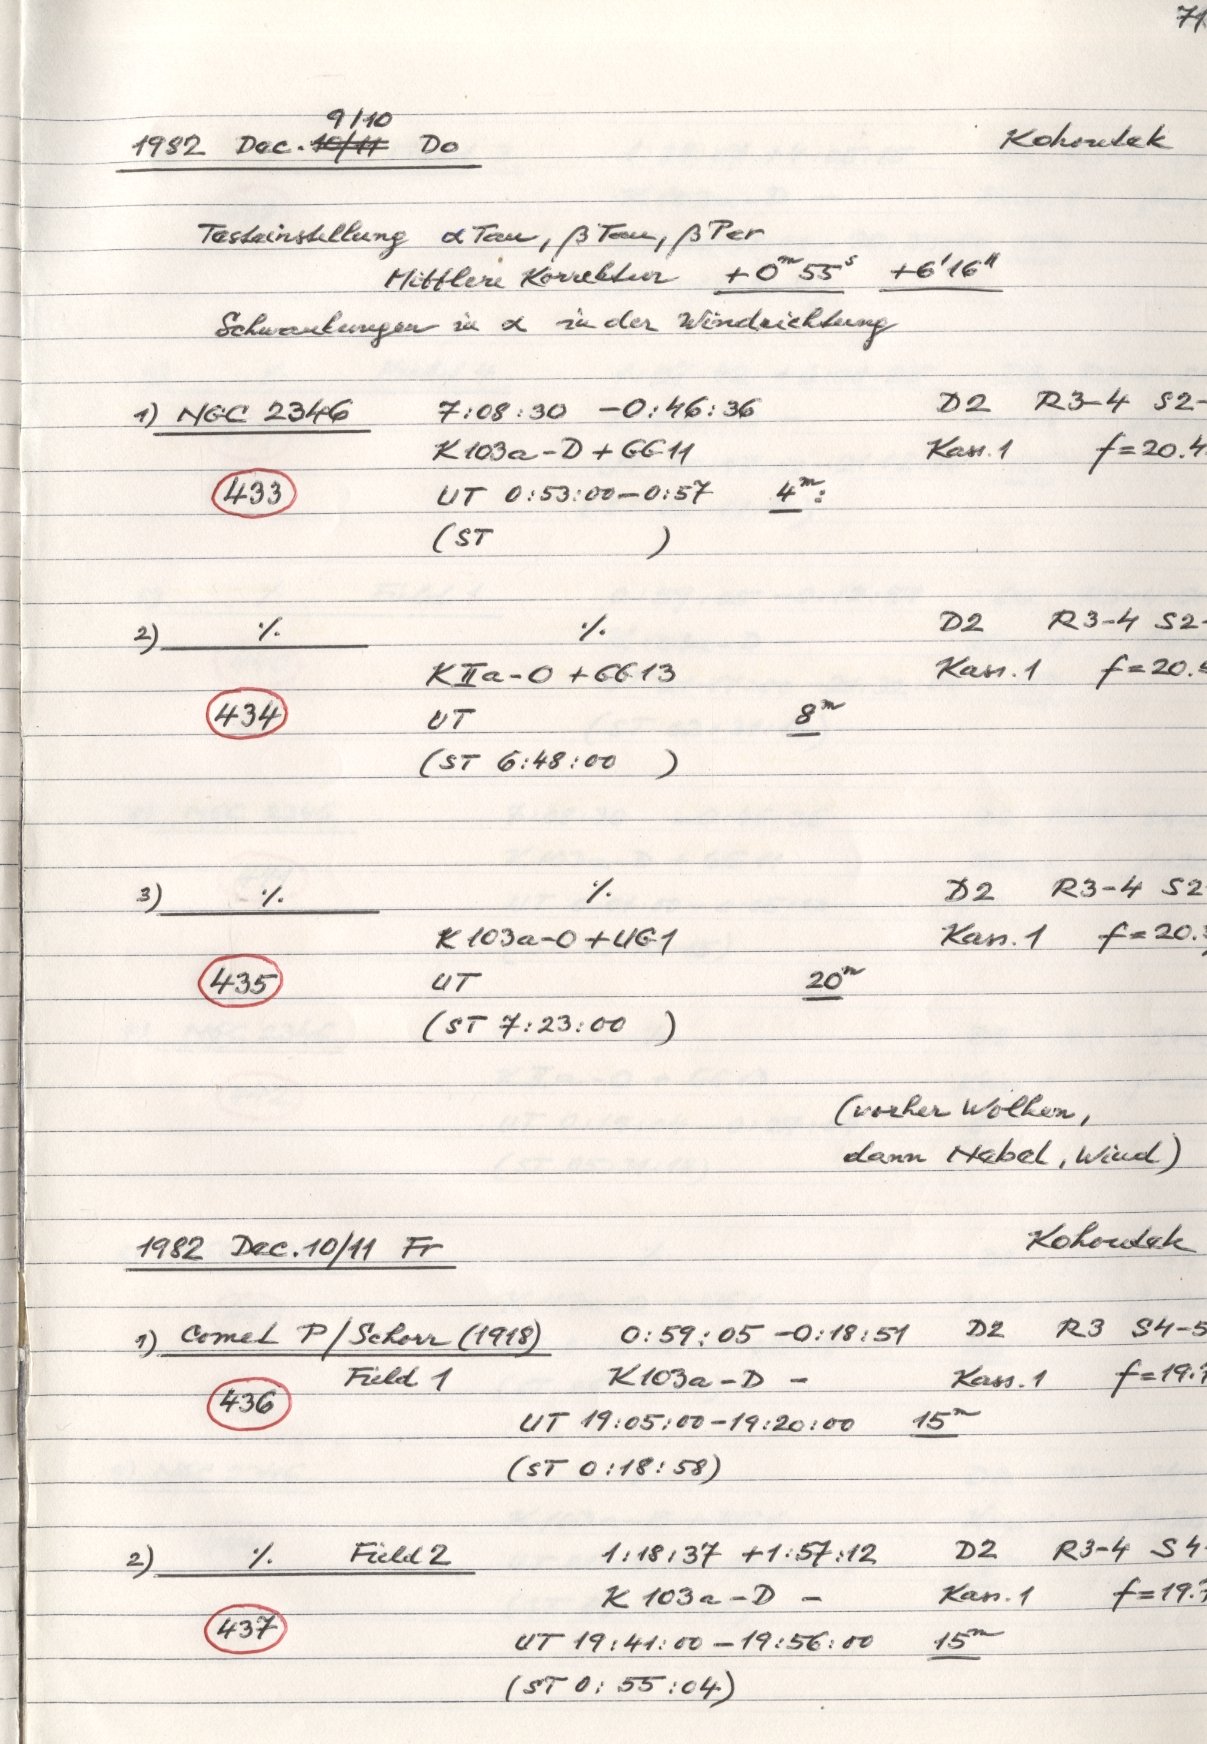 71
9/10
1982 Dec. 10/11 Do Kohoutek
Testeinstellung α Tau, β Tau, β Per
Mittlere Korrektur +0ᵐ55ˢ +6'16"
Schwankungen in α in der Windrichtung
1) NGC 2346 7:08:30 -0:46:36 D2 R3-4 S2-
K103a-D+GG11 Kass.1 f=20.4
433 UT 0:53:00-0:57 4ᵐ:
(ST )
2) ٪. ٪. D2 R3-4 S2-
KIIa-O+GG13 Kass.1 f=20.
434 UT 8ᵐ
(ST 6:48:00 )
3) ٪. ٪. D2 R3-4 S2-
K103a-O+UG1 Kass.1 f=20.
435 UT 20ᵐ
(ST 7:23:00 )
(vorher Wolken,
dann Nebel, Wind)
1982 Dec. 10/11 Fr Kohoutek
1) Comet P/Schorr (1918) 0:59:05 -0:18:51 D2 R3 S4-5
Field 1 K103a-D - Kass.1 f=19.7
436 UT 19:05:00-19:20:00 15ᵐ
(ST 0:18:58)
2) ٪. Field 2 1:18:37 +1:57:12 D2 R3-4 S4-
K103a-D - Kass.1 f=19.7
437 UT 19:41:00-19:56:00 15ᵐ
(ST 0:55:04)